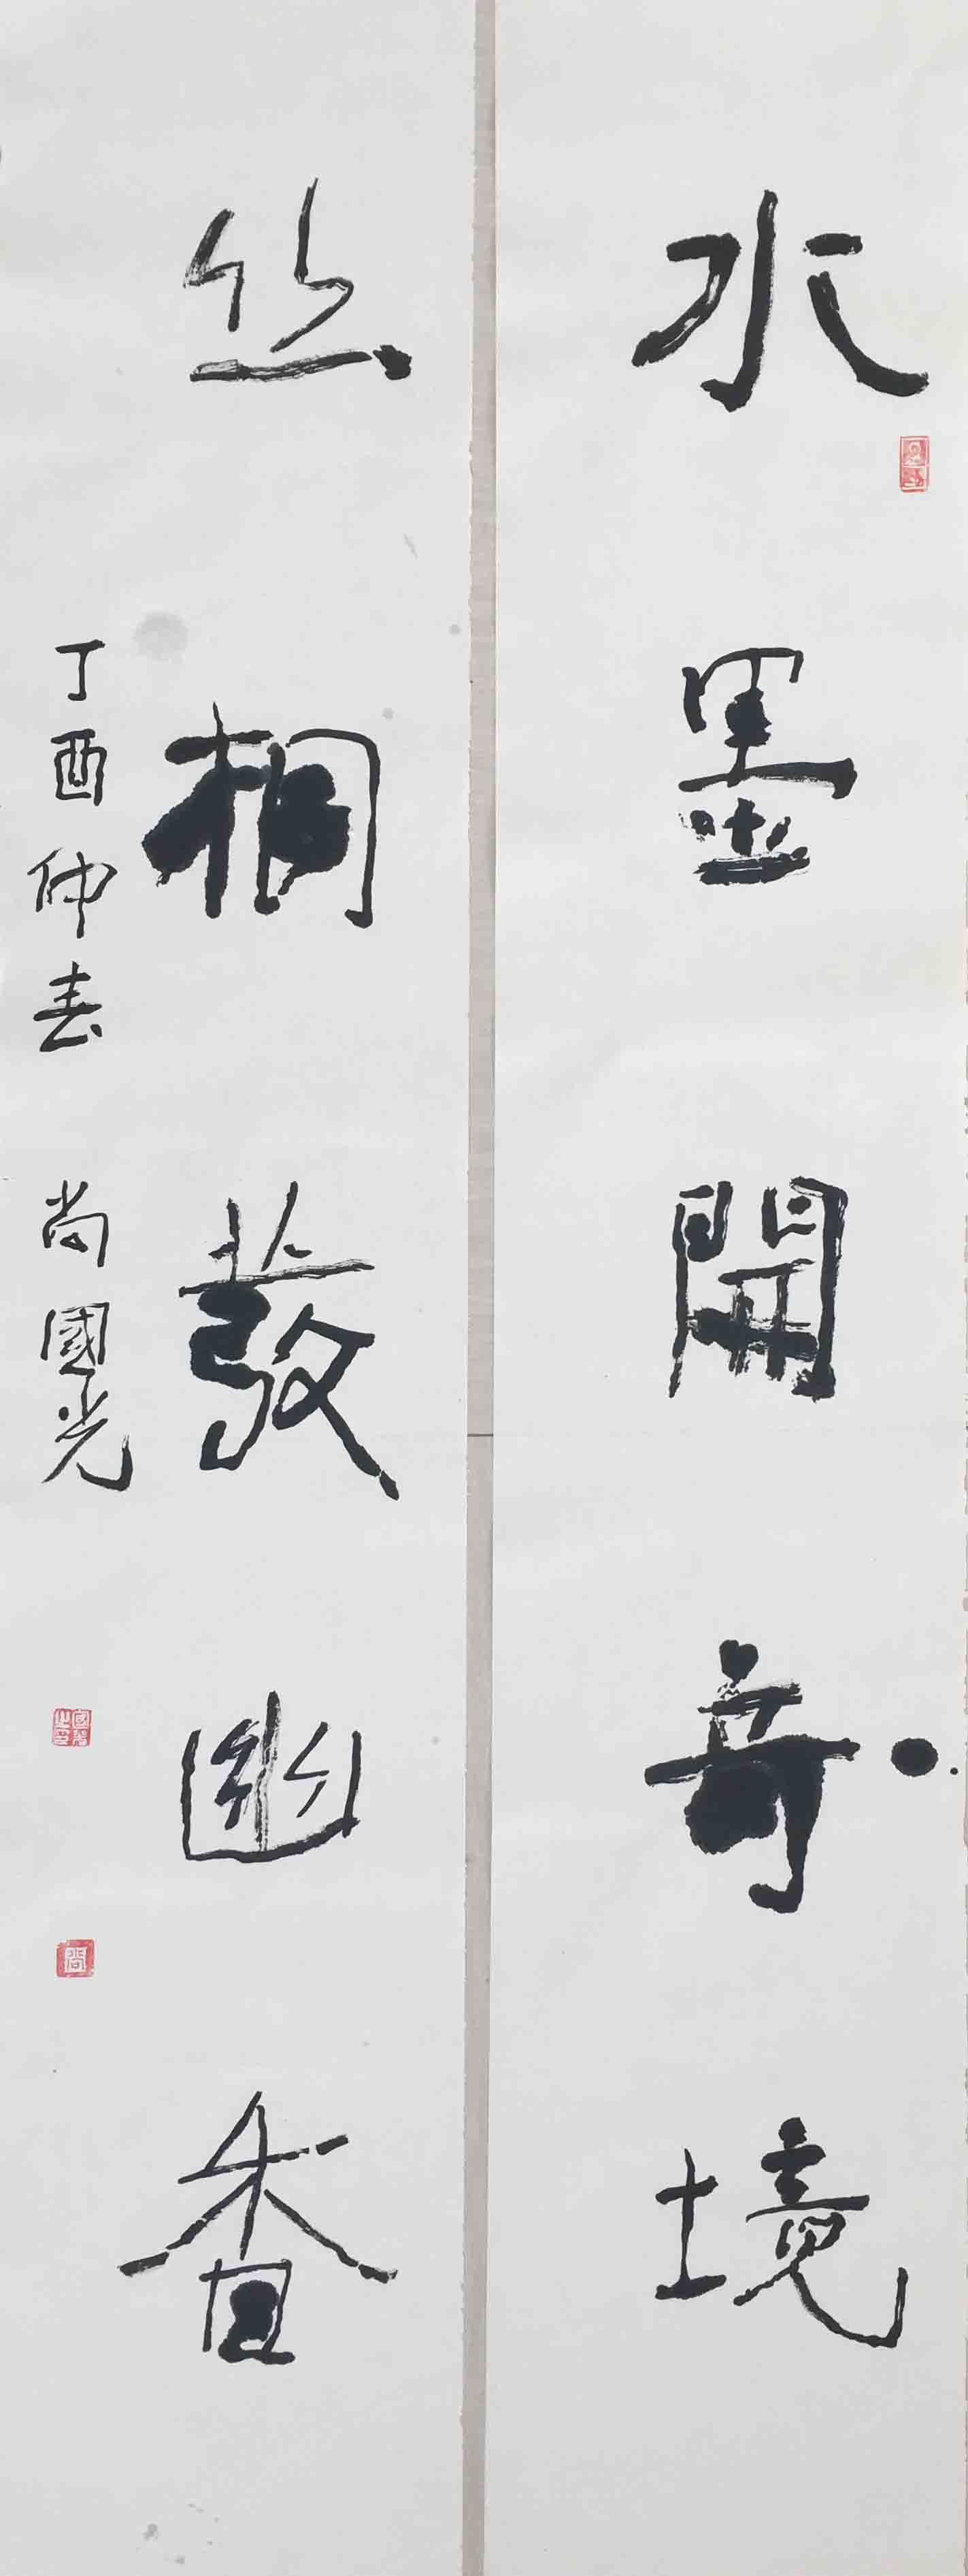 水墨開奇境
丝桐發幽香
丁酉仲春 尚國光